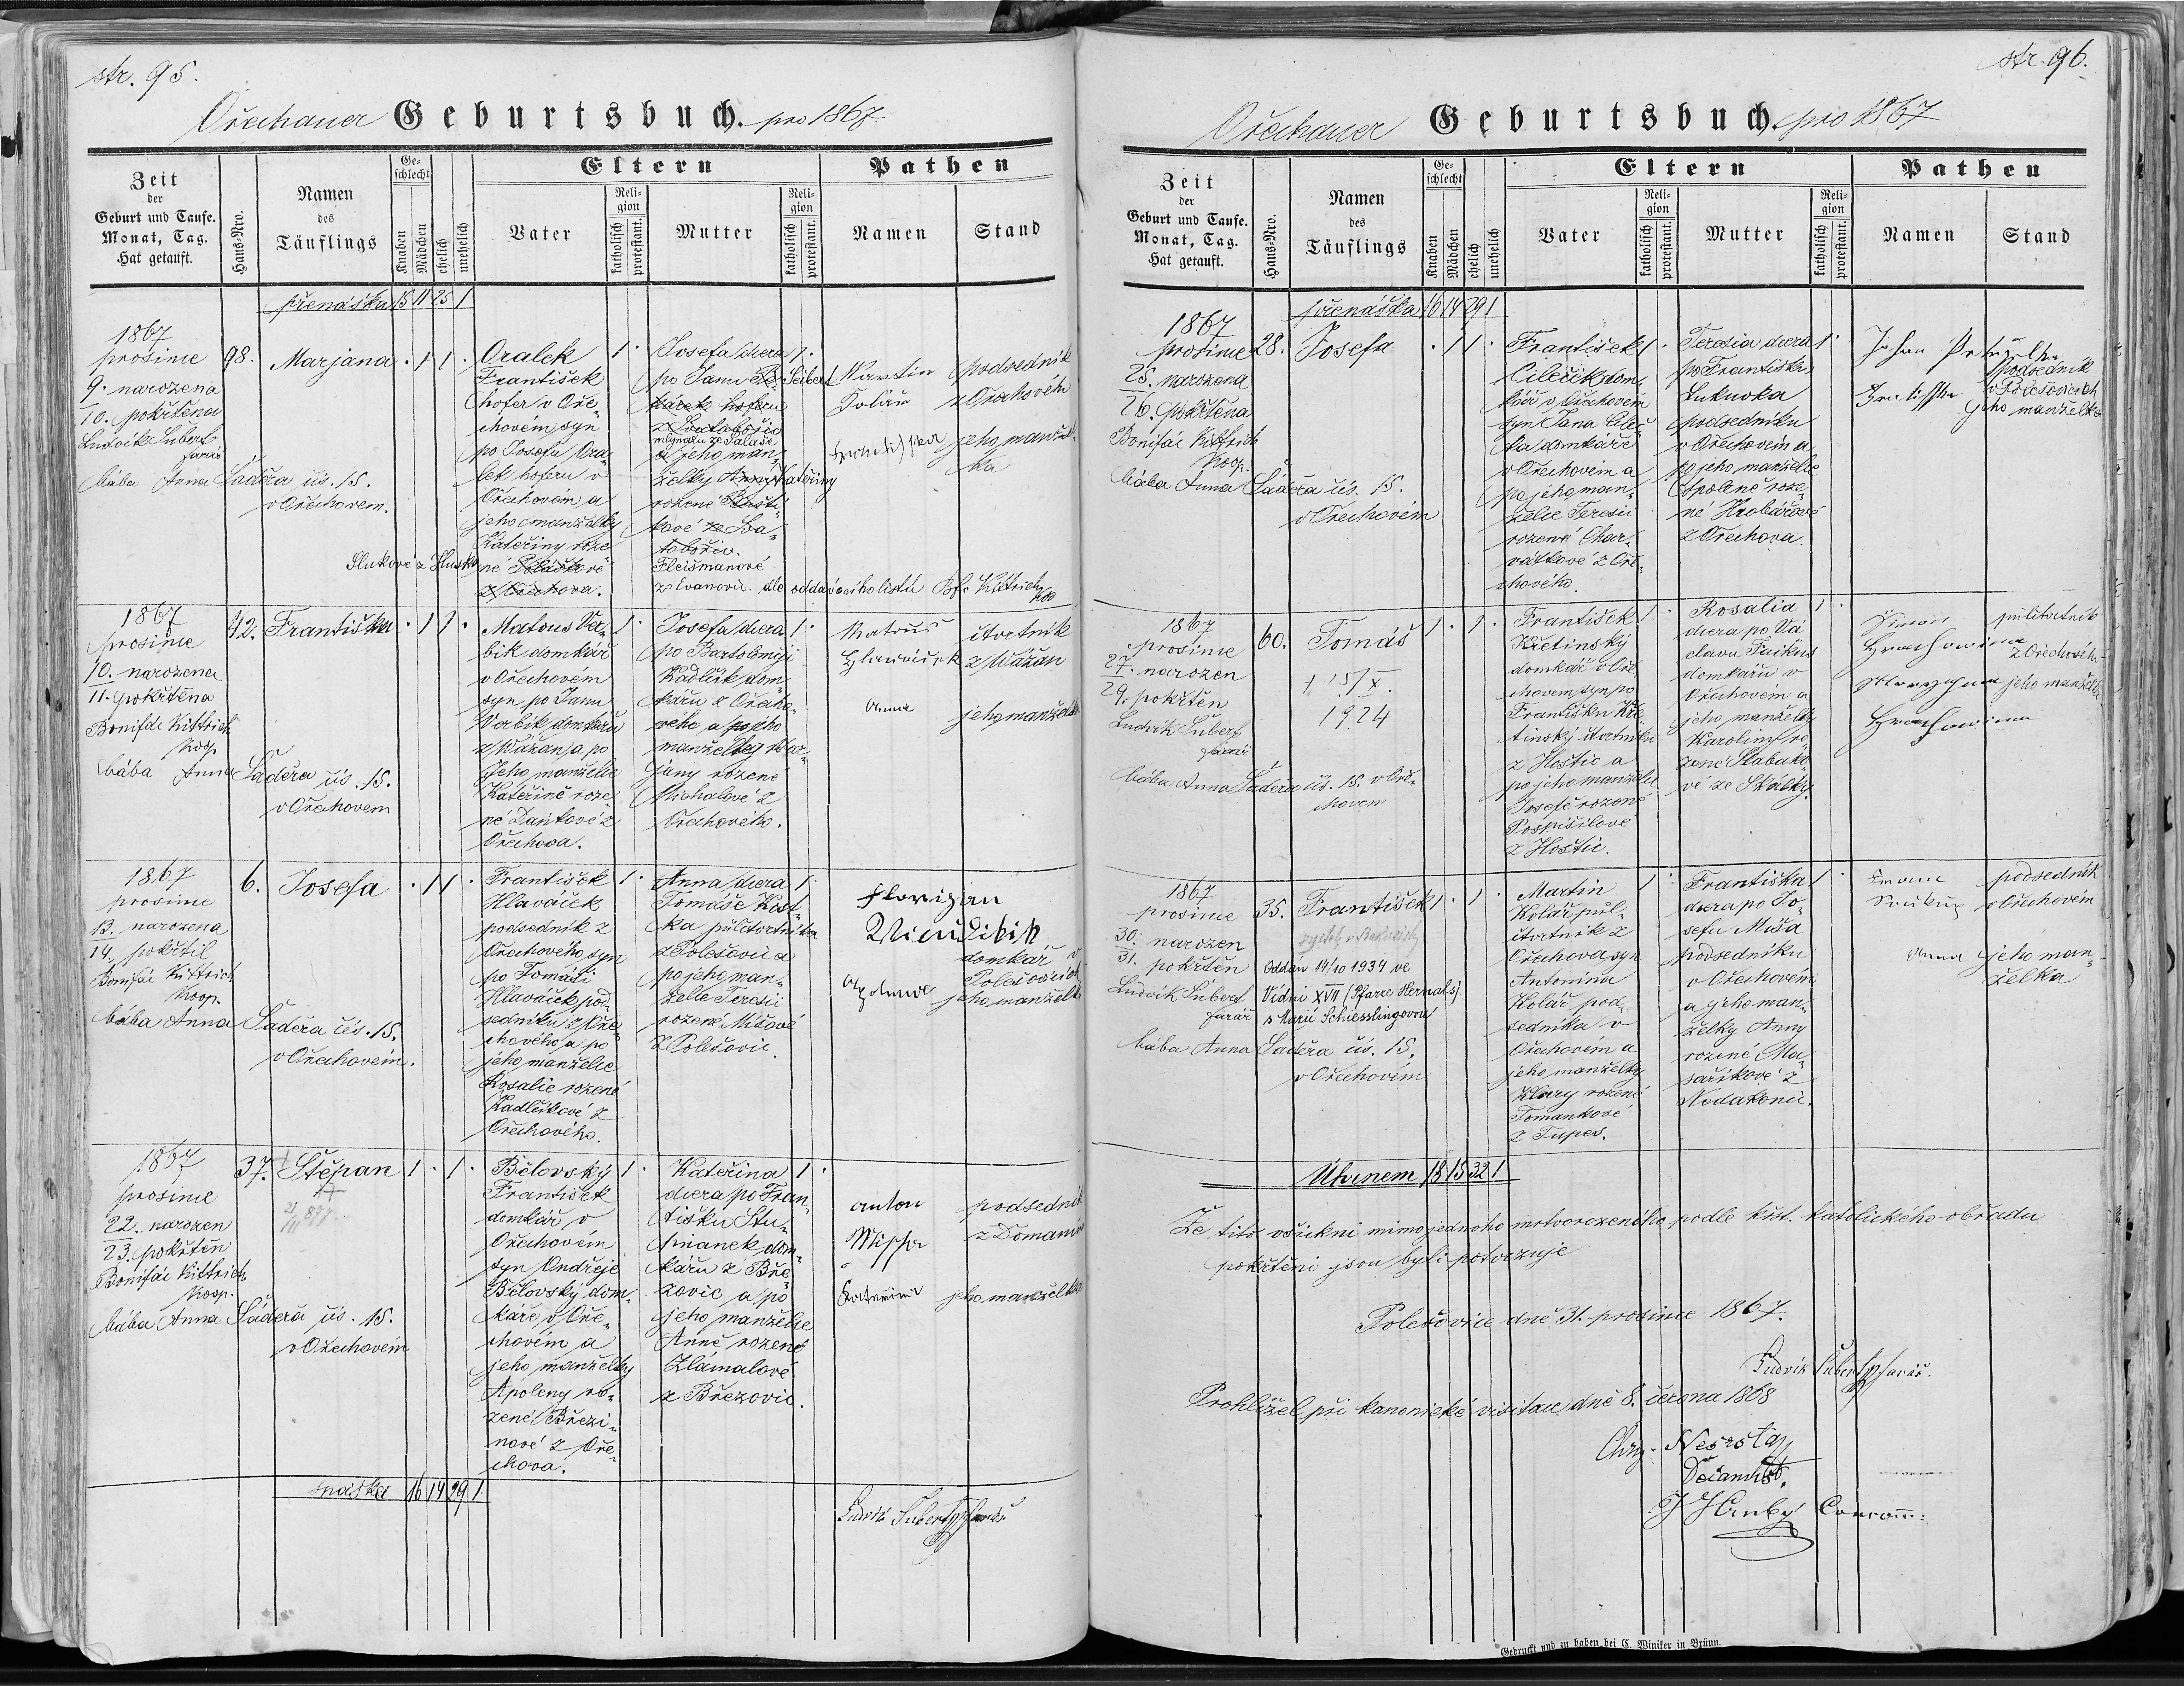 str. 95.
Ořechauer Geburtsbuch. pro 1867
Zeit
der
Geburt und Taufe.
Monat, Tag.
Hat getauft.
Haus-Nro.
Namen
des
Täuflings
Geschlecht
Knaben
Mädchen
ehelich
unehelich
Eltern
Vater
Religion
katholisch
protestant.
Mutter
Religion
katholisch
protestant.
Pathen
Namen
Stand
přenáška 15 11 25 1
1867
prosince
9. narozena
10. pokřtěna
Ludvík Šubert
farář
bába Anna Šáděra čís. 15.
v Ořechovem.
98.
Marjana · 1 1 ·
Oralek
František
hofer v Oře-
chovem, syn
po Josefu Ora-
lek hoferu v
Ořechovém a
jeho manželky
Kateřiny roze
né
z Ořechova.
1 ·
Josefa dcera
po Janu Seibert
mlynáři ze Salaše
a jeho man-
želky Kateřiny
rozené
Fleišmanové
z Evanovic. dle oddavacího listu Bfc Kittrich
1 ·
Martin
Kolář
podsedník
z Ořechovém
jeho manžel-
ka
1867
prosince
10. narozena
11. pokřtěna
Bonifác Kittrich
Koop.
bába Anna Šáděra čís. 15.
v Ořechovem
42.
Františka · 1 1 ·
Matouš Ver-
bík domkář
v Ořechovem
syn po Janu
Verbík domkáři
z Vážan a po
jeho manželce
Kateřině roze
né Daňkové z
Ořechova.
1 ·
Josefa dcera
po Bartoloměji
Kadlčík dom-
káři z Ořecho-
vého a po jeho
manželky Mar-
jany rozené
Michalové z
Ořechového.
1 ·
Matouš
Hlaváček
čtvrtník
z Vážan
Anna
jeho manželka
1867
prosince
13. narozena
14. pokřtil
Bonifác Kittrich
Koop.
bába Anna Šáděra čís. 15.
v Ořechovem.
6.
Josefa · 1 1 ·
František
Hlaváček
podsedník z
Ořechového syn
po Tomáši
Hlaváček pod-
sedníku z Oře-
chového a po
jeho manželce
Rosalie rozené
Kadlčíkové z
Ořechového.
1 ·
Anna dcera
Tomáše Kost-
ka půlčtvrtníka
z Polešovic a
po jeho man-
želce Teresii
rozené Míšové
z Polešovic.
1 ·
Florizan
domkář v
Polešovicích
Apolena
jeho manželka
1867
prosince
22. narozen
23. pokřtěn
Bonifác Kittrich
Koop.
bába Anna Šáděra čís. 15.
v Ořechovém
37.
Štěpan 1 · 1 ·
Bělovský
František
domkář v
Ořechovém
syn Ondřeje
Bělovský dom-
káře v Oře-
chovém a
jeho manželky
Apoleny ro-
zené Březi-
nové z Oře-
chova.
1 ·
Kateřina
dcera po Fran-
tišku Stu-
pňanek dom-
káři z Bře-
zovic a po
jeho manželce
Anně rozené
Zlámalové
z Březovic.
1 ·
Anton
podsedník
z Domanín
Kateřina
jeho manželka
snáška 16 14 29 1
Ludvík Šubert farář
str. 96.
Ořechauer Geburtsbuch. pro 1867
Zeit
der
Geburt und Taufe.
Monat, Tag.
Hat getauft.
Haus-Nro.
Namen
des
Täuflings
Geschlecht
Knaben
Mädchen
ehelich
unehelich
Eltern
Vater
Religion
katholisch
protestant.
Mutter
Religion
katholisch
protestant.
Pathen
Namen
Stand
přenáška 16 14 29 1
1867
prosince
25. narozena
26. pokřtěna
Bonifác Kittrich
Koop.
bába Anna Šáděra čís. 15.
v Ořechovém
28.
Josefa · 1 1 ·
František
Cileček dom-
kář v Ořechovém
syn Jana Cileč-
ka domkáře
v Ořechovem a
po jeho man-
želce Teresii
rozené Char-
vátkové z Oře-
chového.
1 ·
Teresia dcera
po Františku
Lukuvka
podsedníku
v Ořechovém a
po jeho manželce
Apoleně roze-
né Hrobářové
z Ořechova.
1 ·
Johan
podsedník
v Polešovicích
jeho manželka
1867
prosince
27. narozen
29. pokřtěn
Ludvík Šubert
farář
bába Anna Šáděra čís. 15. v Oře-
chovem
60.
Tomáš 1 · 1 ·
1924
František
Křetinský
domkář v Oře-
chovem, syn po
Františku Kře-
tinský čtvrtníku
z Hoštic a
po jeho manželce
Josefě rozené
Pospíšilové
z Hoštic.
1 ·
Rosalia
dcera po Vá
clavu Faikus
domkáři v
Ořechovém a
jeho manželky
Karoliny ro-
zené Slabáko-
vé ze Skálky.
1 ·
Šimon
půlčtvrtník
z Ořechového
jeho manželka
1867
prosince
30. narozen
31. pokřtěn
Ludvík Šubert
farář
bába Anna Šáděra čís. 15.
v Ořechovém
35.
František 1 · 1 ·
Oddán 14/10 1934 ve
Vídni XVII (Pfarre Hernals)
s Marií Schiesslingovou
Martin
Kolář půl-
čtvrtník z
Ořechova syn
Antonína
Kolář pod-
sedníka v
Ořechovém a
jeho manželky
Klary rozené
Tomankové
z Tupes.
1 ·
Františka
dcera po Jo-
sefu Míša
podsedníku
v Ořechovém
a jeho man-
želky Anny
rozené Ma-
saříkové z
Nedakonic.
1 ·
podsedník
v Ořechovém
Anna
jeho man-
želka
Úhrnem 18 15 32 1
Že tito všickni mimo jednoho mrtvorozeného podle křst. katolického obřadu
pokřtěni jsou byli potvrzuje
Polešovice dně 31. prosince 1867.
Ludvík Šubert farář.
Prohlížel při kanonické visitaci dně 8. června 1868
Gedruckt und zu haben bei C. Winiker in Brünn.